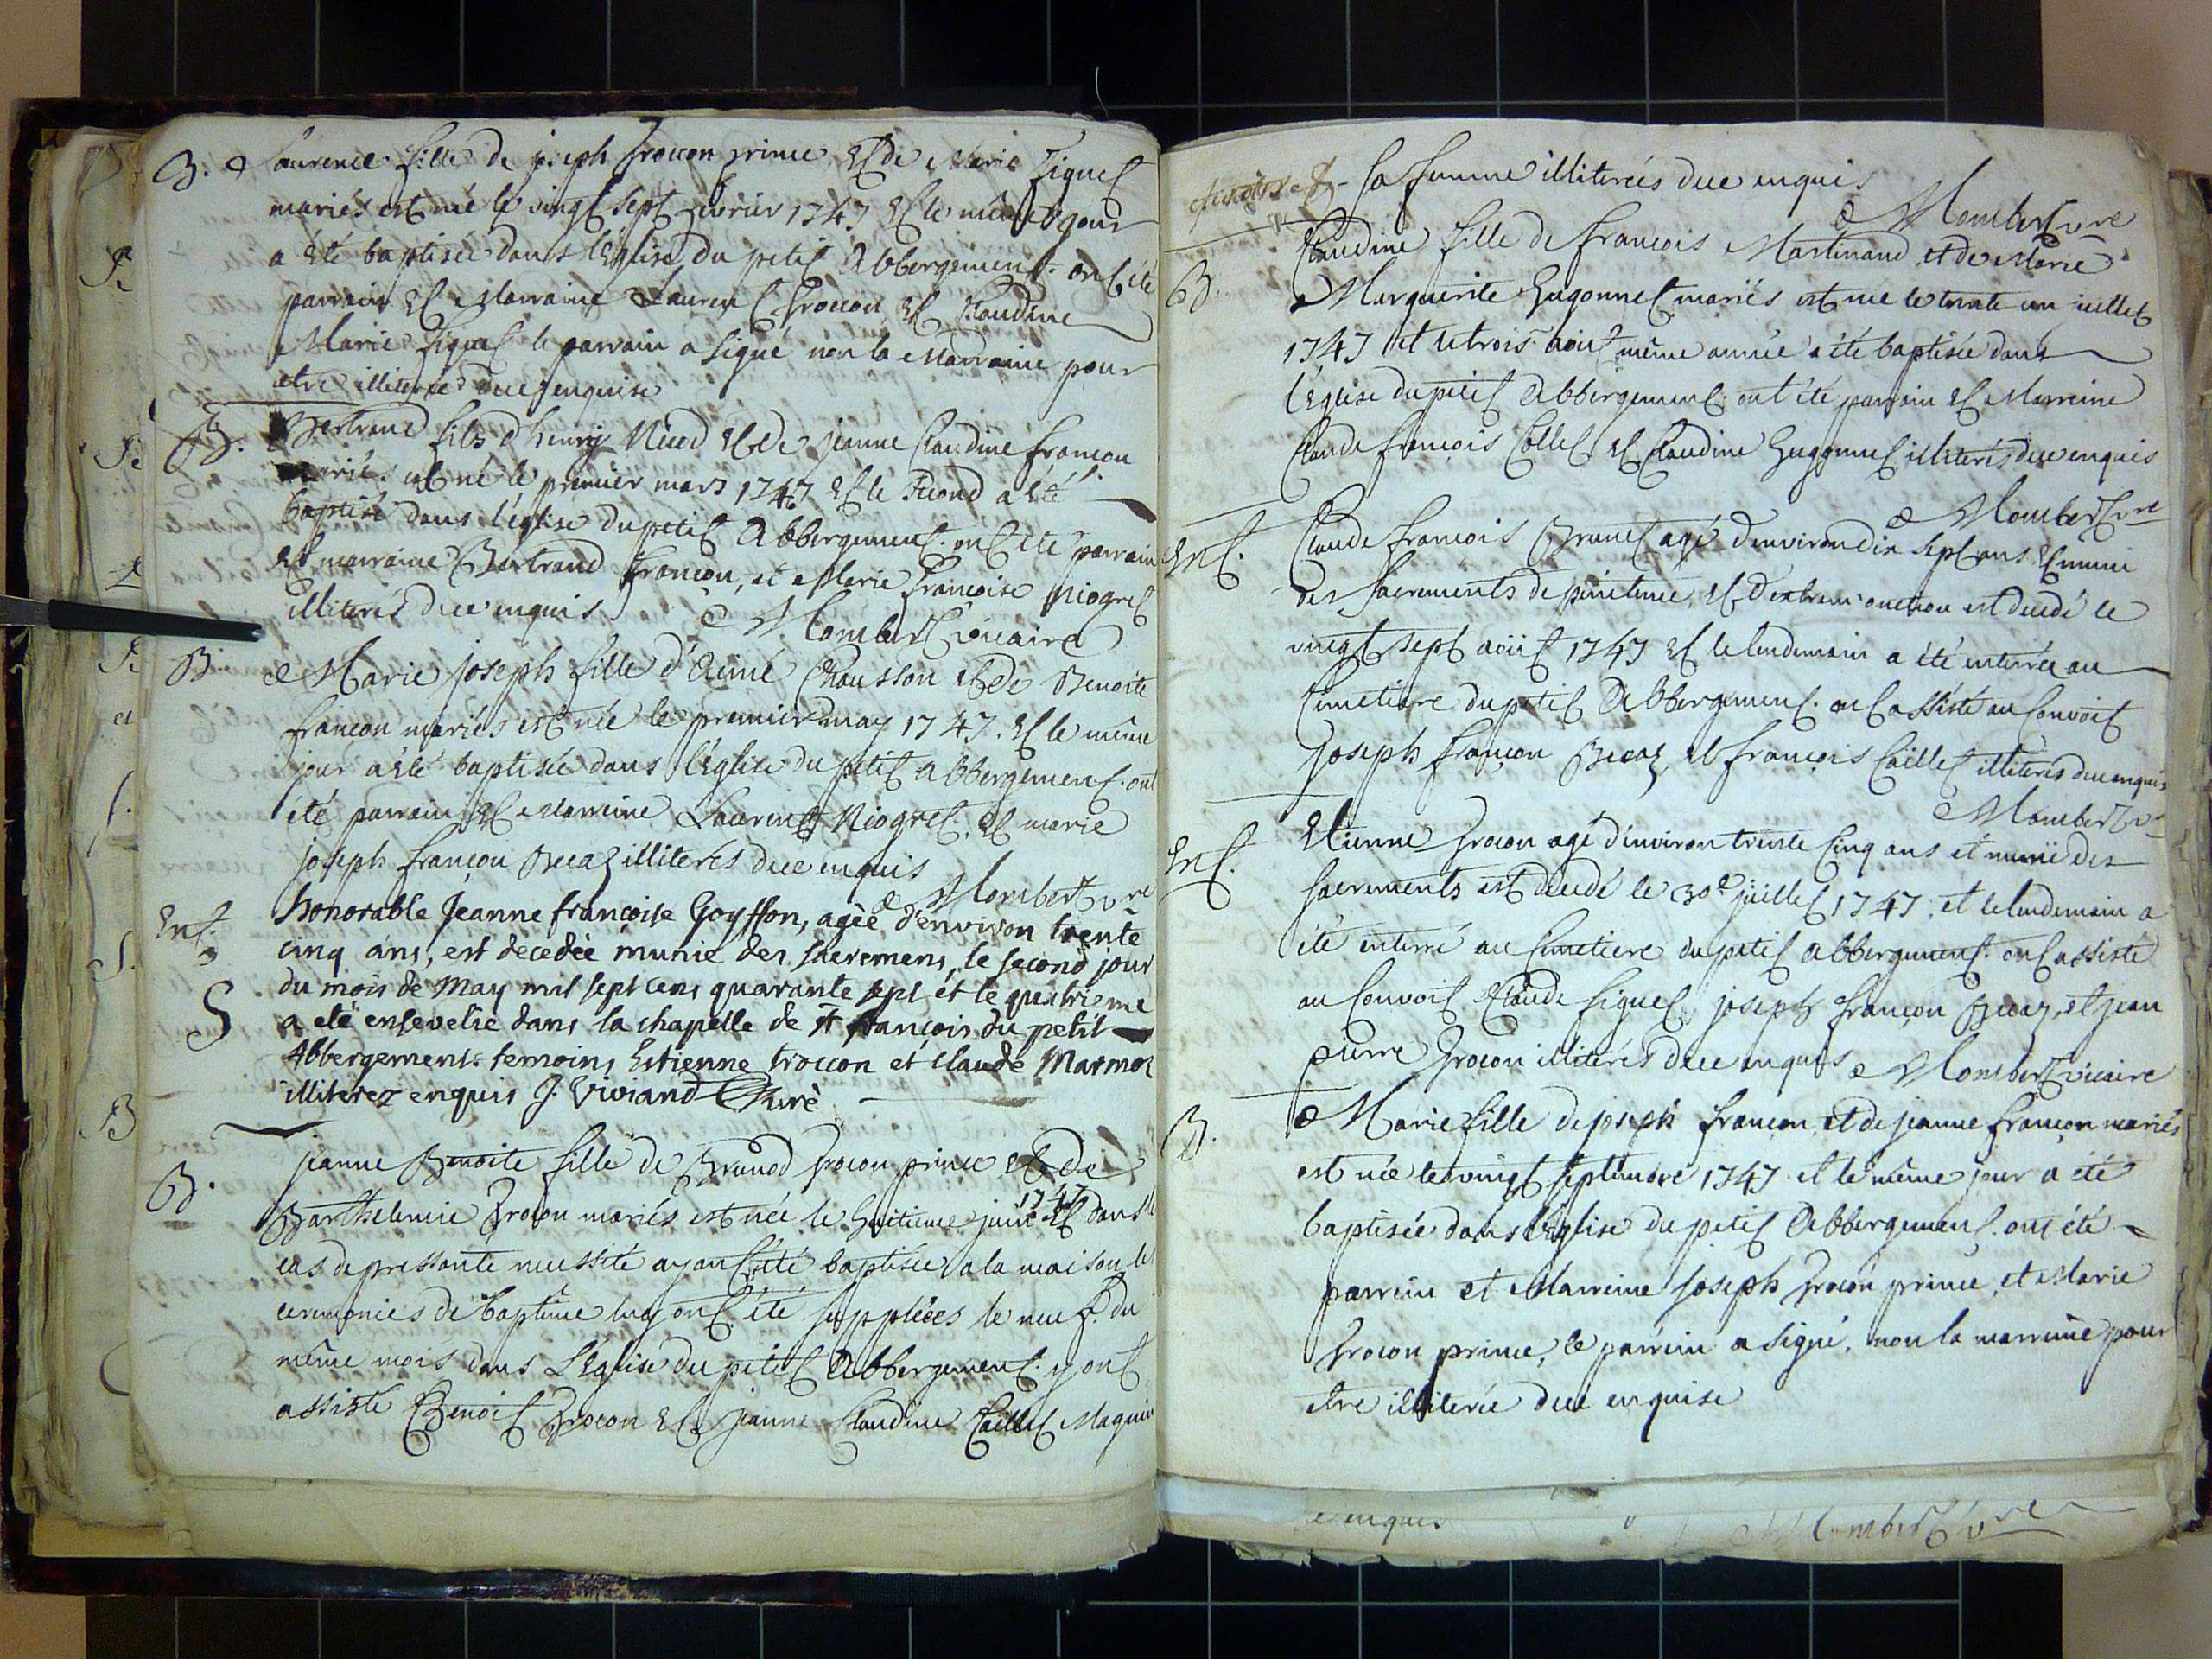 B. Laurence fille de joseph troccon prince Et de Marie Figuet
mariés est née le vingt sept fevrier 1747 Et le même jour
a été baptisée dans l'Eglise du petit Abbergement. ont été
parrain Et Marraine Laurent troccon, Et Claudine
Marie Figuet le parrain a signé non la Marraine pour
etre illiterée duee enquise
B. Bertrand fils d'henry Niced Et de jeanne Claudine françon
mariés est né le premier mars 1747 Et le second a été
baptisé dans l'église du petit Abbergement. ont été parrain
Et marraine Bertrand françon, et Marie françoise Niogret
illiterés duee enquis Mombert vicaire
B Marie joseph fille d'Aimé Chausson et de Benoite
françon mariés est née le premier may 1747. Et le même
jour a été baptisée dans l'Eglise du petit abbergement. ont
été parrain Et Marreine Laurent Niogret, Et marie
joseph françon Becaz illiterés duee enquis
Mombert vre
Ent. honorable Jeanne françoise Goyffon, agèe d'environ trente
cinq ans, est decedèe munie des sacremens, le second jour
S du mois de May mil sept cens quarante sept et le quatrieme
a eté ensevelie dans la chapelle de st françois du petit
Abbergement. temoins Estienne troccon et Claude Marmos
illiterez enquis J. Viviand Curè
jeanne Benoite fille de Brunod trocon prince Et de
B. Barthelemie trocon mariés est née le huitieme juin 1747 Et dans le
cas de pressante necessité ayant été baptisée a la maison les
ceremonies de baptême luy ont été supplées le neuf. du
même mois dans L'Eglise du petit Abbergement. y ont
assisté Benoit trocon Et jeanne Claudine Caillet Maquin
sa femme illiterées duee enquis
Mombert vre
Claudine fille de françois Martinand et de Marie
B. Marguerite hugonnet mariés est née le trente un juillet
1747 et le trois aout même année a été baptisée dans
l'Eglise du petit Abbergement ont été parrain Et Marreine
Claude françois Collet Et Claudine hugonnet illiterés duee enquis
Mombert vre
Ent. Claude françois Brunet agé d'environ dix sept ans Et muni
des sacrements de pénitence, Et d'extreme onction est decedé le
vingt sept aout 1747 Et le lendemain a été enterré au
Cimetiere du petit Abbergement. ont assisté au Convoit
joseph françon Becaz, et françois Caillet illiterés duee enquis
Mombert vre
Ent. Etienne trocon agé d'environ trente cinq ans et munie des
sacrements est decedé le 30e juillet 1747, et le lendemain a
été enterré au Cimetiere du petit abbergement. ont assisté
au Convoit Claude Figuet, joseph françon Becaz, et jean
pierre trocon illiterés duee enquis Mombert vicaire
B. Marie fille de joseph françon et de jeanne françon mariés
est née le vingt septembre 1747 et le même jour a été
baptisée dans l'Eglise du petit Abbergement. ont été
parrein et Marreine joseph trocon prince, et Marie
trocon prince, le parrein a signé, non la marreine pour
etre illiterée duee enquise
enquis Mombert vre